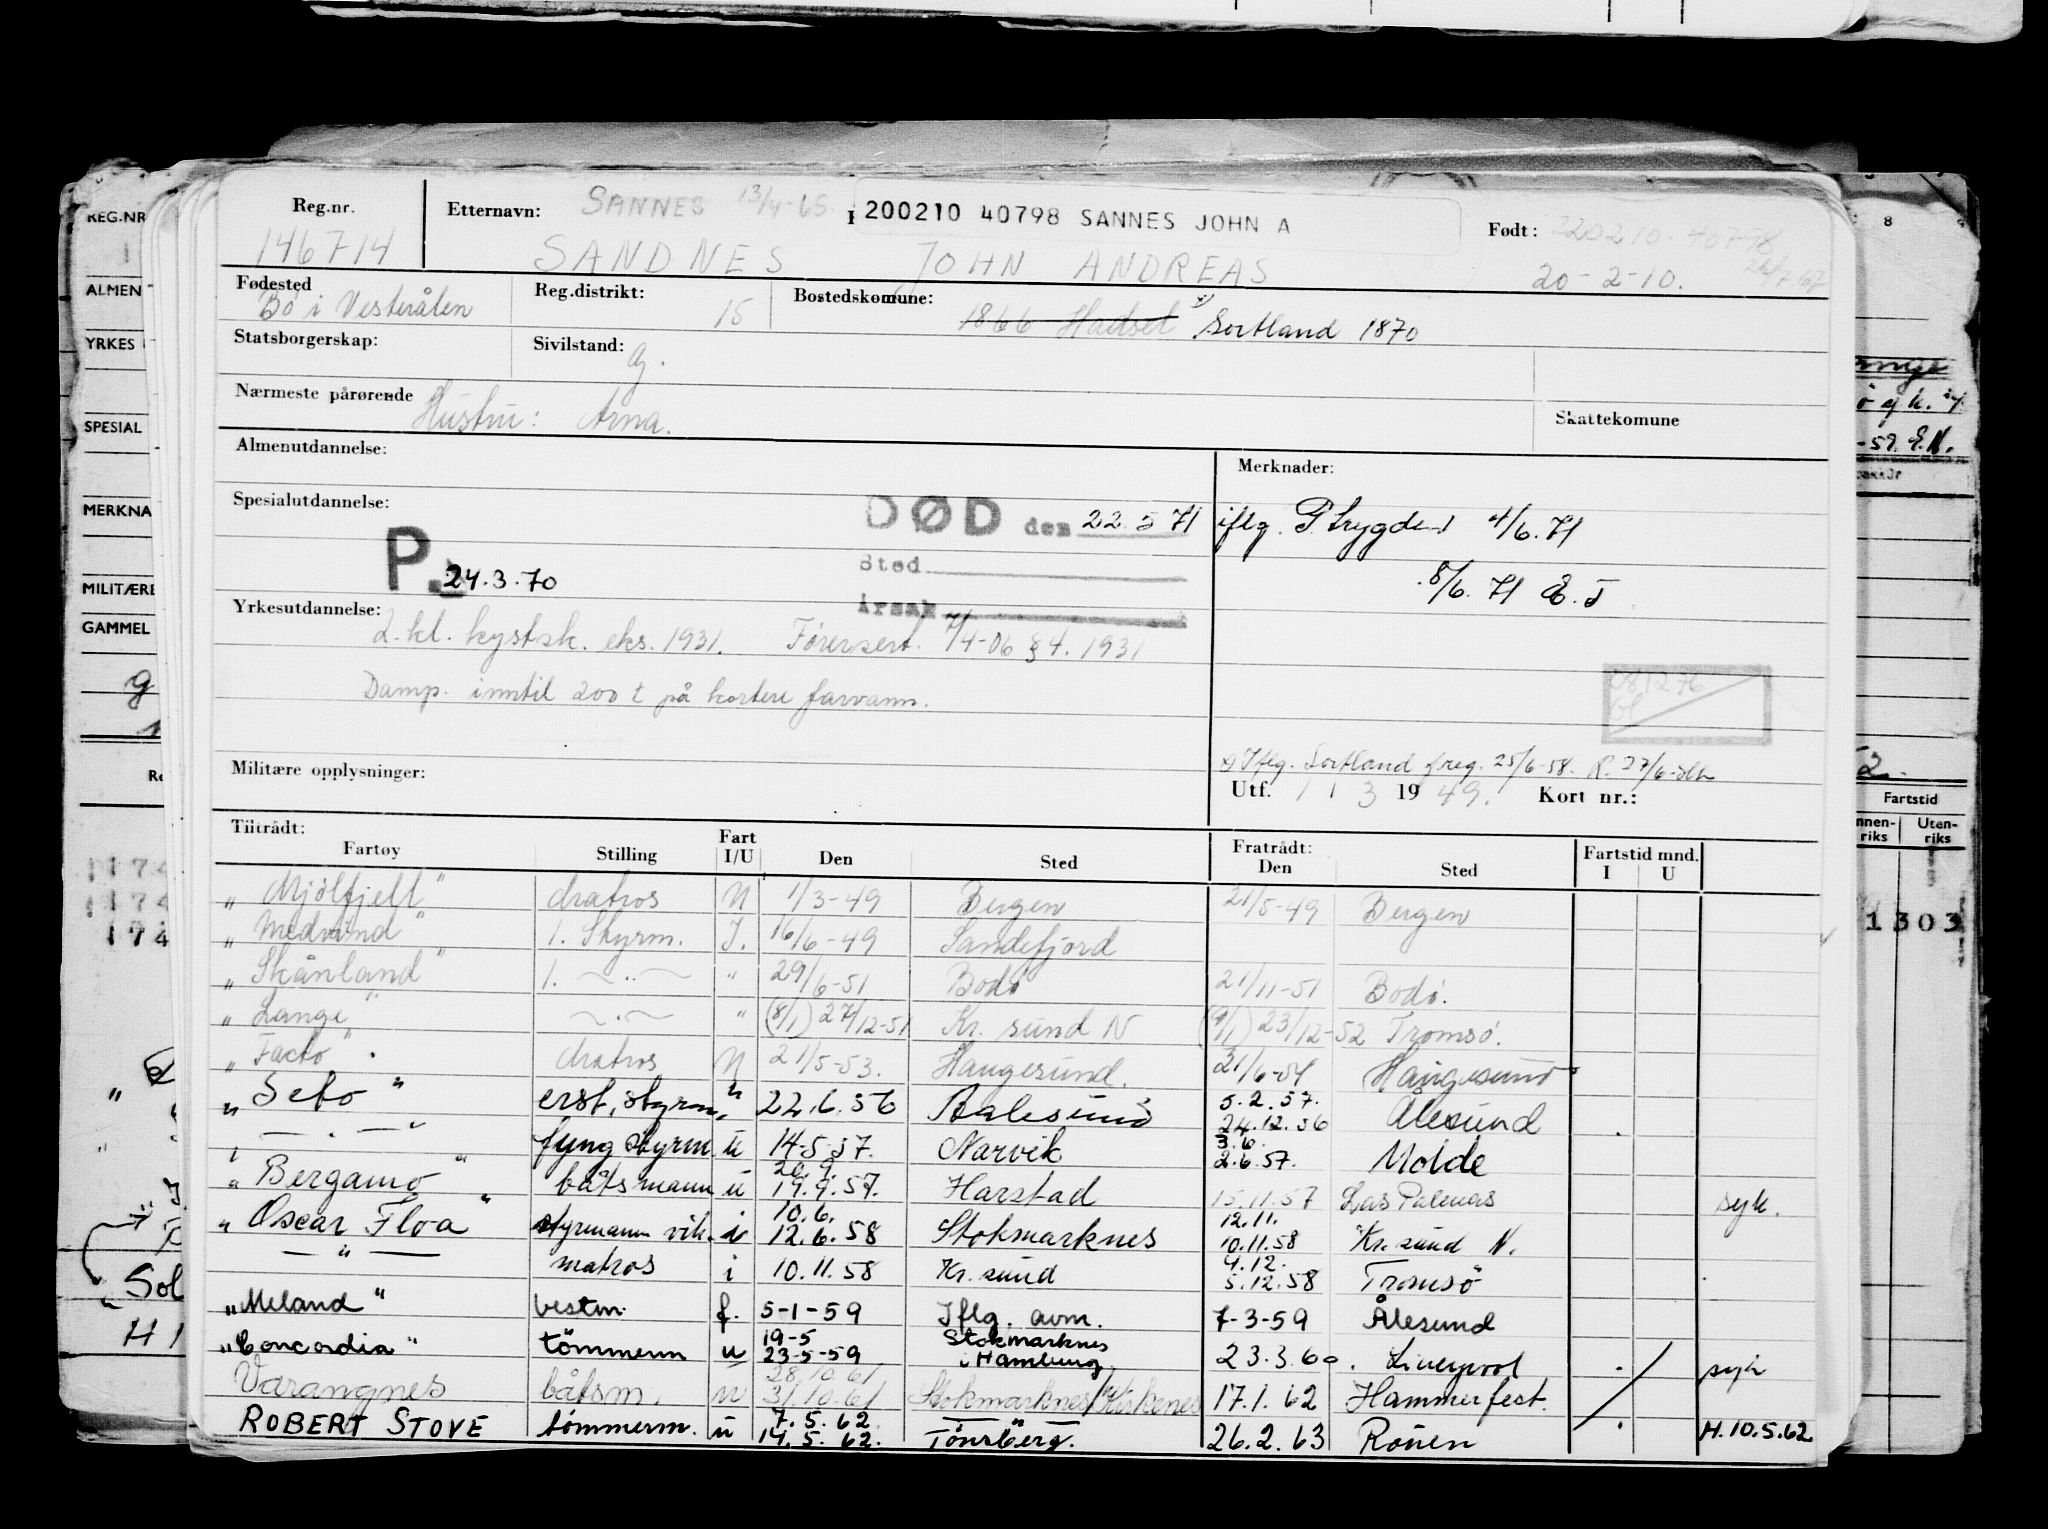 Reg.nr. Etternavn: SANNES 13/4-65. 200210 40798 SANNES JOHN A Født: 220210-40798
146714 SANDNES JOHN ANDREAS 20-2-10.
Fødested Reg.distrikt: Bostedskomune:
Bø i Vesterålen 15 1866 Hadsel x) Sortland 1870
Statsborgerskap: Sivilstand: g.
Nærmeste pårørende Skattekomune
Hustru: Arna.
Almenutdannelse: Merknader:
Spesialutdannelse: DØD den 22.5 71 iflg. P.trygden 4/6.71
P. 24.3.70 Sted 8/6.71 E.J
Yrkesutdannelse: Årsak
2.kl. kystsk. eks. 1931. Førersert. 7/4-06 § 4. 1931
081276
Damp. inntil 200 t på kortere farvann.
Militære opplysninger: x) Iflg. Sortland freg. 25/6-58. R. 27/6-
Utf. 1 / 3 1949. Kort nr.:
Tiltrådt: Fratrådt: Fartstid mnd.
Fartøy Stilling Fart I/U Den Sted Den Sted I U
" Mjölfjell" Matros U 1/3-49 Bergen 21/5-49 Bergen
" Medvind" 1. Styrm. I. 16/6-49 Sandefjord
" Skånland" 1. — " — " 29/6-51 Bodø 21/11-51 Bodø.
" Lange" — " — " (8/1) 27/12-51 Kr. sund N (9/1) 23/12-52 Tromsø.
" Facto" Matros U 21/5-53. Haugesund. 21/6-54 Haugesund
" Seto " erst. styrm. " 22.6.56 Aalesund 5.2.57. 24.12.56 Ålesund
" — " — fung styrm u 14-5-57. Narvik 3.6. 2.6.57. Molde
" Bergamo " båtsmann u 20.9. 19.9.57. Harstad 15.11.57 Las Palmas syk.
" Oscar Floa " styrmann vik. i 10.6. 12.6.58 Stokmarknes 12.11. 10.11.58 Kr. sund N.
— " — matros i 10.11.58 Kr. sund 4.12. 5.12.58 Tromsö
"Meland" bestm. f. 5-1-59 Iflg. avm. 7-3-59 Ålesund
"Concordia" tömmerm u 19-5 23-5-59 Stokmarknes i Hamburg 23.3.60. Liverpool syk
Varangnes båtsm. u 28.10.61 31.10.61 Stokmarknes/Kirkenes 17.1.62 Hammerfest.
ROBERT STOVE tömmerm. u 7.5.62. 14.5.62. Tönsberg. 26.2.63 Rouen H.10.5.62
REG.NR
ALMEN
YRKES
SPESIAL
MERKNA
MILITÆRE
GAMMEL
174
174
174
Sol
8
-59. E.N.
Fartstid
Uten-
riks
1303